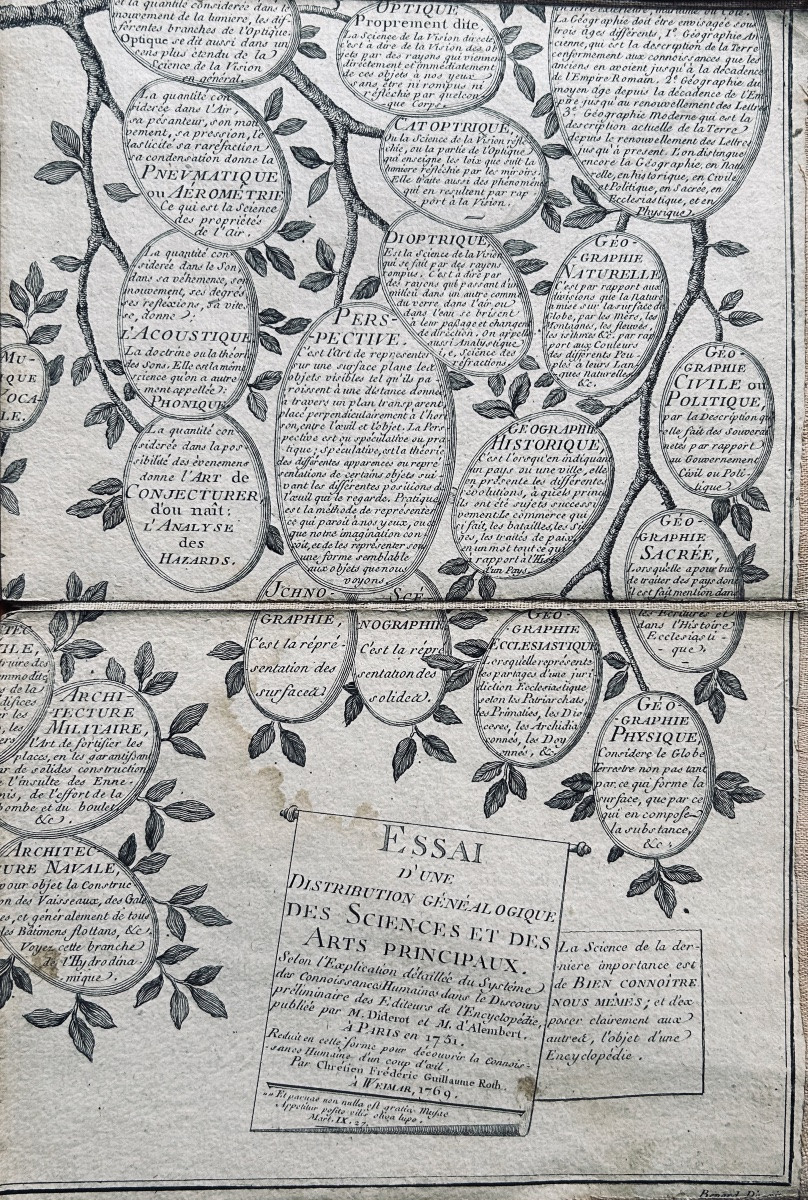 st la quantité considérée dans l
mouvement de la lumière, les dif-
férentes branches de l'Optique.
Optique se dit aussi dans un
sens plus étendu de la
Science de la Vision
en général.
OPTIQUE
Proprement dite,
c'est à dire de la Vision directe
jets par des rayons qui viennent
directement et immédiatement
de ces objets à nos yeux
sans être ni rompus ni
réfléchis par quelcon-
que Corps.
La Géographie doit être envisagée sous
trois âges différents, 1.° Géographie An
cienne, qui est la description de la Terre
conformement aux connoisances que les
anciens en avoient jusqu'à la décadence
de l'Empire Romain. 2.° Géographie du
moyen âge depuis la décadence de l'Em
pire jusqu'au renouvellement des Lettres
3.° Géographie Moderne qui est la
description actuelle de la Terre
depuis le renouvellement des Lettres
jusqu'à present. L'on distingue
encore la Géographie, en Natu
relle, en historique, en Civile
et Politique, en Sacrée, en
Ecclesiastique, et en
Physique.
La quantité con
sidérée dans l'Air,
sa pésanteur, son mou
vement, sa pression, l'e
lasticité sa raréfaction
sa condensation donne la
PNEVMATIQUE
ou AÉROMÉTRIE
Ce qui est la Science
des propriétés
de l'Air.
CATOPTRIQUE,
Ou la Science de la Vision réflé
chie, ou la partie de l'Optique
qui enseigne les loix que suit la
lumière réfléchie par les miroirs.
Elle traite aussi des phénomènes
qui en resultent par rap
port à la Vision.
DIOPTRIQUE,
Est la Science de la Vision
qui se fait par des rayons
rompus. C'est à dire par
des rayons qui passant d'un
milieu dans un autre comme
du verre dans l'air, ou
dans l'eau se brisent
à leur passage et changent
de direction. On appelle
aussi Analystique
i,e, Science des
réfractions.
GÉO-
GRAPHIE
NATURELLE
C'est par rapport aux
divisions que la Nature
a mise sur la surface du
Globe, par les Mers, les
Montagnes, les fleuves,
les isthmes &c. par rap
port aux Couleurs
des différents Peu-
ples à leurs Lan-
gues Naturelles
&c.
La quantité con
sidérée dans le Son,
dans sa véhemence, son
mouvement, ses degrés,
ses reflexions, sa vites-
se, donne
L'ACOUSTIQUE
La doctrine ou la théorie
des Sons. Elle est la même
science qu'on a autre
ment appellée
PHONIQUE
PERS-
PECTIVE.
C'est l'Art de representer
sur une surface plane les
objets visibles tel qu'ils pa
roissent à une distance donnée
à travers un plan transparent
placé perpendiculairement à l'hori
son, entre l'œuil et l'objet. La Pers
pective est ou spéculative ou pra
tique; Spéculative, est la théorie
des différentes apparences ou repre
sentations de certains objets sui
vant les différentes positions de
l'œuil qui le regarde. Pratique
est la méthode de représenter
ce qui paroit à nos yeux, ou ce
que notre imagination con-
çoit, et de les représenter sous
une forme semblable
aux objets que nous
voyons.
GÉO-
GRAPHIE
CIVILE ou
POLITIQUE,
par la Description qu
elle fait des Souverai
netés par rapport
au Gouvernement
Civil ou Poli-
tique.
MU-
IQUE
VOCA-
LE.
GEOGRAPHIE
HISTORIQUE,
C'est lorsqu'en indiquant
un pays ou une ville, elle
en présente les différentes
révolutions, à quels princes
ils ont été sujets successi
vement. Le commerce qui
si fait, les batailles, les Sié
ges, les traités de paix,
en un mot tout ce qui
a rapport à l'Histoire
d'un Pays.
La quantité con
sidérée dans la pos
sibilité des évenemens
donne l'ART de
CONJECTURER
d'ou naît:
L'ANALYSE
des
HAZARDS.
GÉO-
GRAPHIE
SACRÉE,
Lorsquelle a pour but
de traiter des pays dont
il est fait mention dans
les Écritures et
dans l'Histoire
Ecclesiasti-
que.
JCHNO-
GRAPHIE,
C'est la répré-
sentation des
surfaces.
SCÉ
NOGRAPHIE
C'est la répre
sentation des
solides.
GÉO-
GRAPHIE
ECCLESIASTIQUE
Lorsqu'elle represente
les partages d'une juri
diction Ecclesiastique
selon les Patriarchats,
les Primaties, les Dio
ceses, les Archidia
connés, les Doy
ennés, &c.
TEC-
ILE,
ARCHI-
TECTURE
MILITAIRE,
l'Art de fortifier les
places, en les garantissant
par de solides construction
de l'insulte des Enne-
mis, de l'effort de la
bombe et du boulet,
&c.
GÉO-
GRAPHIE
PHYSIQUE,
Considere le Globe
Terrestre non pas tant
par ce qui forme la
surface, que par ce
qui en compose
la substance,
&c.
ARCHITEC-
TURE NAVALE,
pour objet la Construc
on des Vaisseaux, des Gale
es, et généralement de tous
les Bâtimens flottans, &c.
Voyez cette branche
de l'Hydrodina
mique.
ESSAI
D'UNE
DISTRIBUTION GÉNÉALOGIQUE
DES SCIENCES ET DES
ARTS PRINCIPAUX.
Selon l'Explication détaillée du Système
des Connoissances Humaines dans le Discours
préliminaire des Editeurs de l'Encyclopédie,
publiée par M. Diderot et M. d'Alembert,
à PARIS en 1751.
Reduit en cette forme pour découvrir la Connois-
sance Humaine d'un coup d'œil.
Par Chrétien Frédéric Guillaume Roth.
à WEIMAR, 1769.
Et parvae non nulla est gratia Musae
Appetitur posito vilis oliva lupo.
Mart. IX. 27.
La Science de la der-
niere importance est
de BIEN CONNOÎTRE
NOUS MÊMES; et d'ex
poser clairement aux
autres, l'objet d'une
Encyclopédie.
Benard